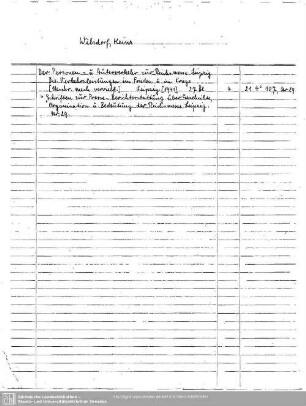 Walsdorf, Heinz
Der Personen- u. Güterverkehr zur Reichsmesse Leipzig
Die Verkehrsleistungen im Frieden u. im Kriege
Leipzig [1941] 27 Bl. 4. 21. 4° 107, Nr 29
= Schriften zur Presse-Berichterstattung über Geschichte,
Organisation u. Bedeutung der Reichsmesse Leipzig.
Nr. 29.
Sächsische Landesbibliothek –
Staats- und Universitätsbibliothek Dresden